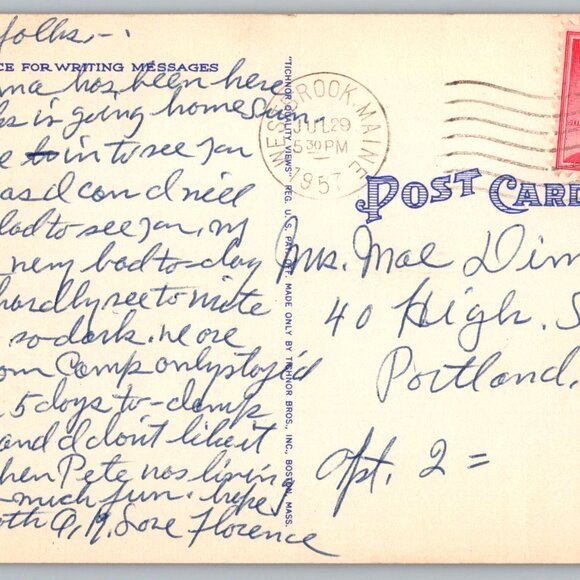 folks—.
CE FOR WRITING MESSAGES
ma has been here
is going home Sun.
e in to see you
as I can I will
lad to see you. my
very bad to-day
hardly see to write
so dark. we are
om Camp only stay'd
5 days to-damp
and I don't like it
hen Pete was livin
much fun. hope
oth O.K. Love Florence
"TICHNOR QUALITY VIEWS" REG. U. S. PAT. OFF. MADE ONLY BY TICHNOR BROS., INC., BOSTON, MASS.
WESTBROOK, MAINE
JUL 29
5 30 PM
1957
POST CARD
Mrs. Mae Dim
40 High. S
Portland.
Apt. 2 =